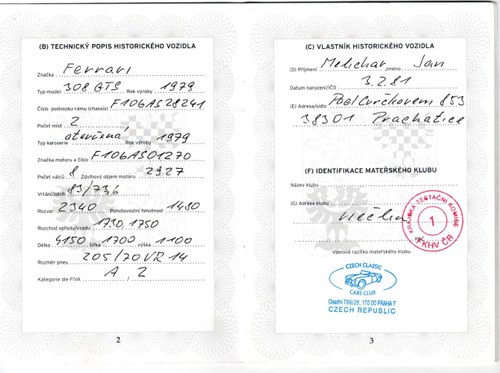 (B) TECHNICKÝ POPIS HISTORICKÉHO VOZIDLA
Značka Ferrari
Typ model 308 GTS Rok výroby 1979
Číslo podvozku-rámu (chassis) F106AS28241
Počet míst 2
Typ karoserie otevřená Rok výroby 1979
Značka motoru a číslo F106AS01270
Počet válců 8 Zdvihový objem motoru 2927
Vrtání/zdvih
Rozvor 2340 Pohotovostní hmotnost 1430
Rozchod vpředu/vzadu 1730, 1750
Délka 4150 šířka 1700 výška 1100
Rozměr pneu 205/70 VR 14
Kategorie dle FIVA A, 2
2
(C) VLASTNÍK HISTORICKÉHO VOZIDLA
(D) Příjmení Melichar Jméno Jan
Datum narození/IČO 3.2.81
(E) Adresa/sídlo 853
38301 Prachatice
(F) IDENTIFIKACE MATEŘSKÉHO KLUBU
Název klubu
(G) Adresa klubu
KRAJSKÁ TESTAČNÍ KOMISE
1
FKHV ČR
Vzorové razítko mateřského klubu
CZECH CLASSIC
CARS CLUB
170 00 PRAHA 7
CZECH REPUBLIC
3